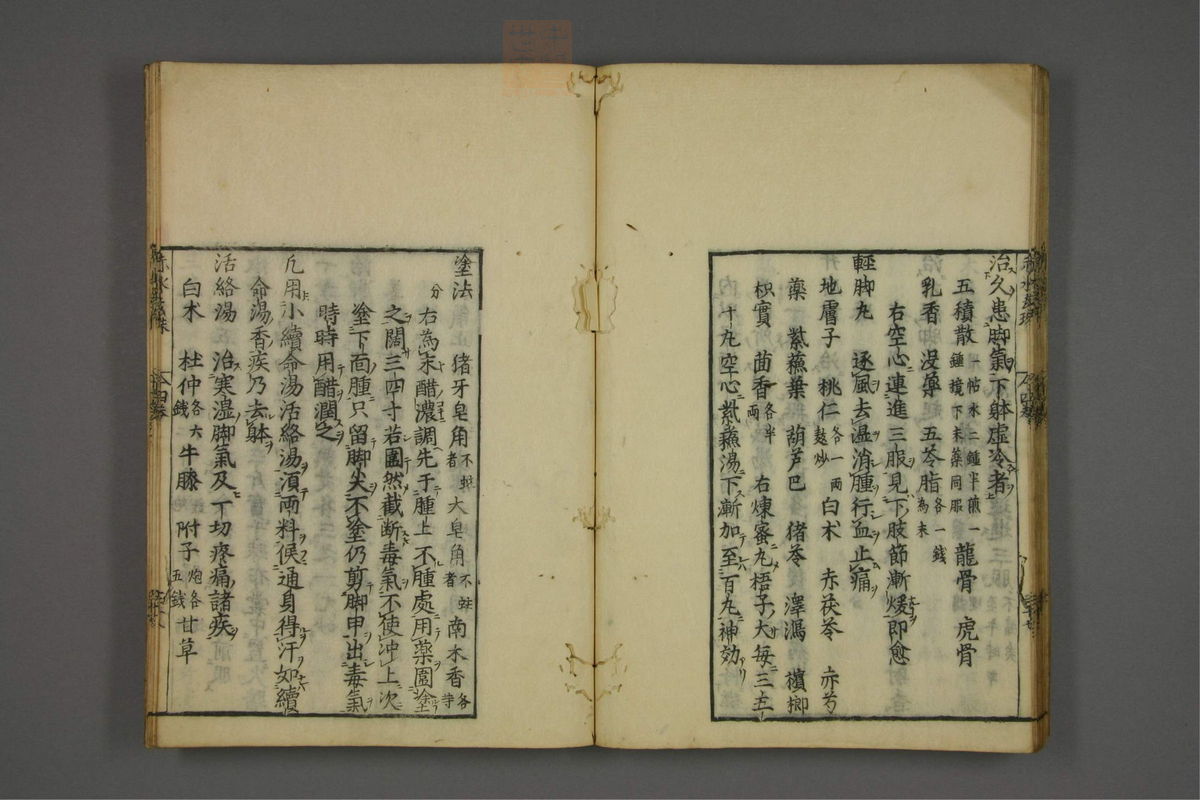 治久患脚氣下躰虛冷者
五積散 一帖水二鍾半煎一鍾 下末薬同服 龍骨 虎骨
乳香 没薬 五苓脂 各一錢為末
右空心連進三服見下肢節漸煖即愈
輕脚丸 逐風去湿消腫行血止痛
地膚子 桃仁 各一兩麩炒 白朮 赤茯苓 赤芍
薬 紫蘓葉 葫芦巴 猪苓 澤瀉 檳榔
枳實 茴香 各半兩 右煉蜜丸梧子大每三五
十丸空心紫蘓湯下漸加至百丸神効
塗法 猪牙皂角 不蛀者 大皂角 不蛀者 南木香 各等
分 右為末醋濃調先于腫上不腫處用薬圍塗
之闊三四寸若圍然截断毒氣不使冲上次
塗下面腫只留脚尖不塗仍剪脚甲出毒氣
時時用醋潤之
凡用小續命湯活絡湯湏兩料候通身得汗如續
命湯香疾乃去躰
活絡湯 治寒湿脚氣及一切疼痛諸疾
白朮 杜仲 各六錢 牛膝 附子 炮各五錢 甘草